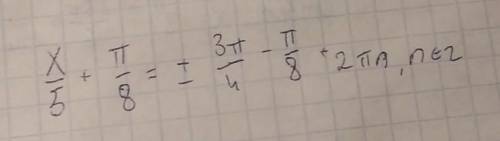 x/5 + π/8 = ± 3π/4 - π/8 + 2πn, n∈z